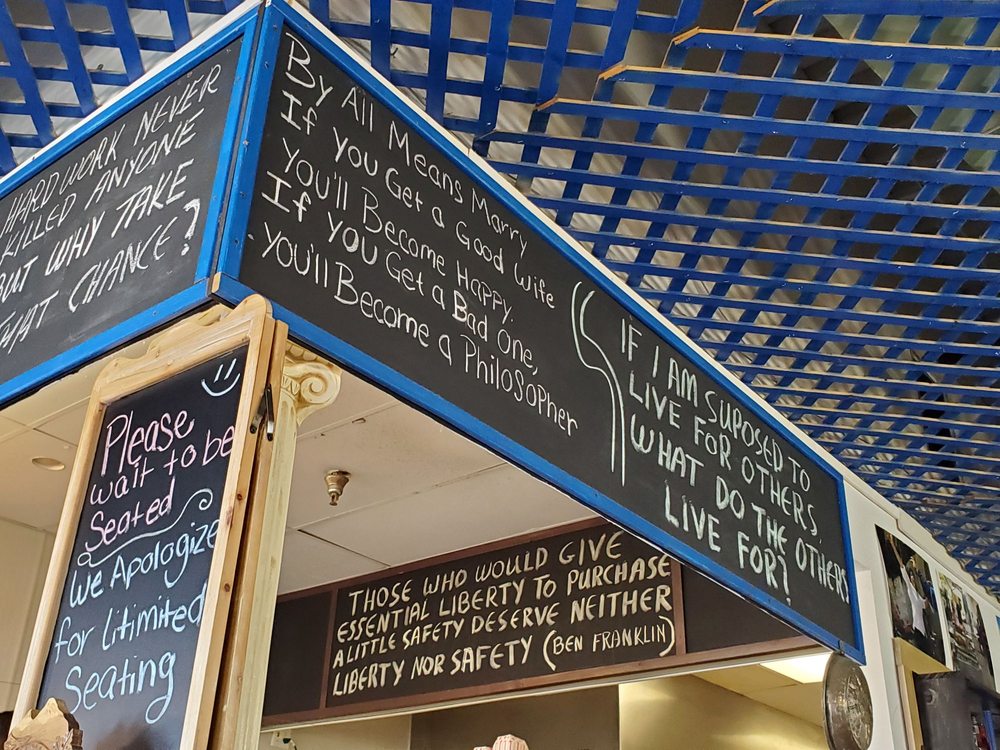 HARD WORK NEVER
KILLED ANYONE
BUT WHY TAKE
THAT CHANCE?
By All Means Marry
If you Get a Good Wife
you'll Become Happy.
If you Get a Bad One,
you'll Become a Philosopher
IF I AM SUPOSED TO
LIVE FOR OTHERS,
WHAT DO THE OTHERS
LIVE FOR?
Please
wait to be
Seated
We Apologize
for litimited
Seating
THOSE WHO WOULD GIVE
ESSENTIAL LIBERTY TO PURCHASE
A LITTLE SAFETY DESERVE NEITHER
LIBERTY NOR SAFETY (BEN FRANKLIN)